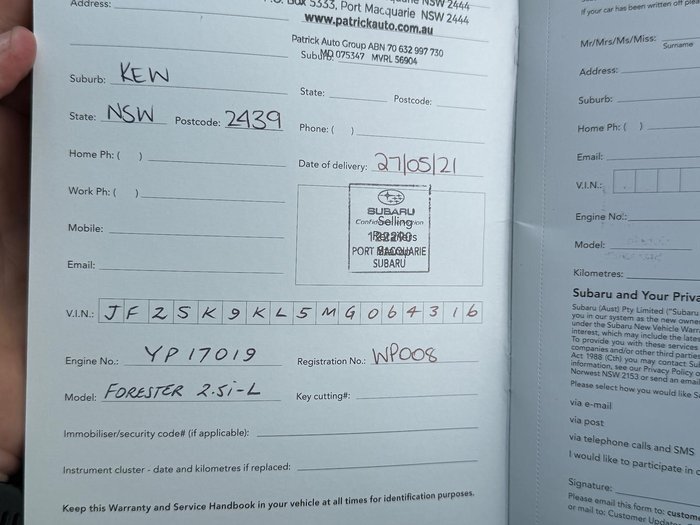 Address:
P.O. Box 5333, Port Macquarie NSW 2444
www.patrickauto.com.au
Patrick Auto Group ABN 70 632 997 730
MD 075347 MVRL 56904
Suburb:
Suburb: KEW
State: Postcode:
State: NSW Postcode: 2439
Phone: ( )
Home Ph: ( )
Date of delivery: 27/05/21
Work Ph: ( )
SUBARU
Selling
PORT MACQUARIE
SUBARU
Mobile:
Email:
V.I.N.: JF2SK9KL5MG064316
Engine No.: YP17019 Registration No.: WP008
Model: FORESTER 2.5i-L Key cutting#:
Immobiliser/security code# (if applicable):
Instrument cluster - date and kilometres if replaced:
Keep this Warranty and Service Handbook in your vehicle at all times for identification purposes.
If your car has been written off
Mr/Mrs/Ms/Miss:
Surname
Address:
Suburb:
Home Ph: (
Email:
V.I.N.:
Engine No.:
Model:
Kilometres:
Subaru and Your Priva
Subaru (Aust) Pty Limited ("Subaru
you in our system as the new owne
under the Subaru New Vehicle Warr
interest, which may include the lates
To provide you with these services
companies and/or other third parties
Act 1988 (Cth) you may contact Sub
information, see our Privacy Policy
Norwest NSW 2153 or send an emai
Please select how you would like S
via e-mail
via post
via telephone calls and SMS
I would like to participate in
Signature:
Please email this form to: custom
or mail to: Customer Upda